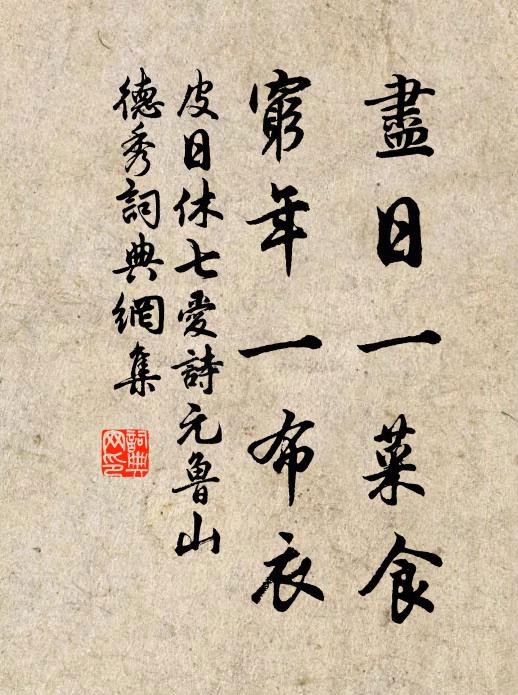 盡日一菜食
窮年一布衣
皮日休七愛詩元魯山
德秀詞典網集
詞典
网印